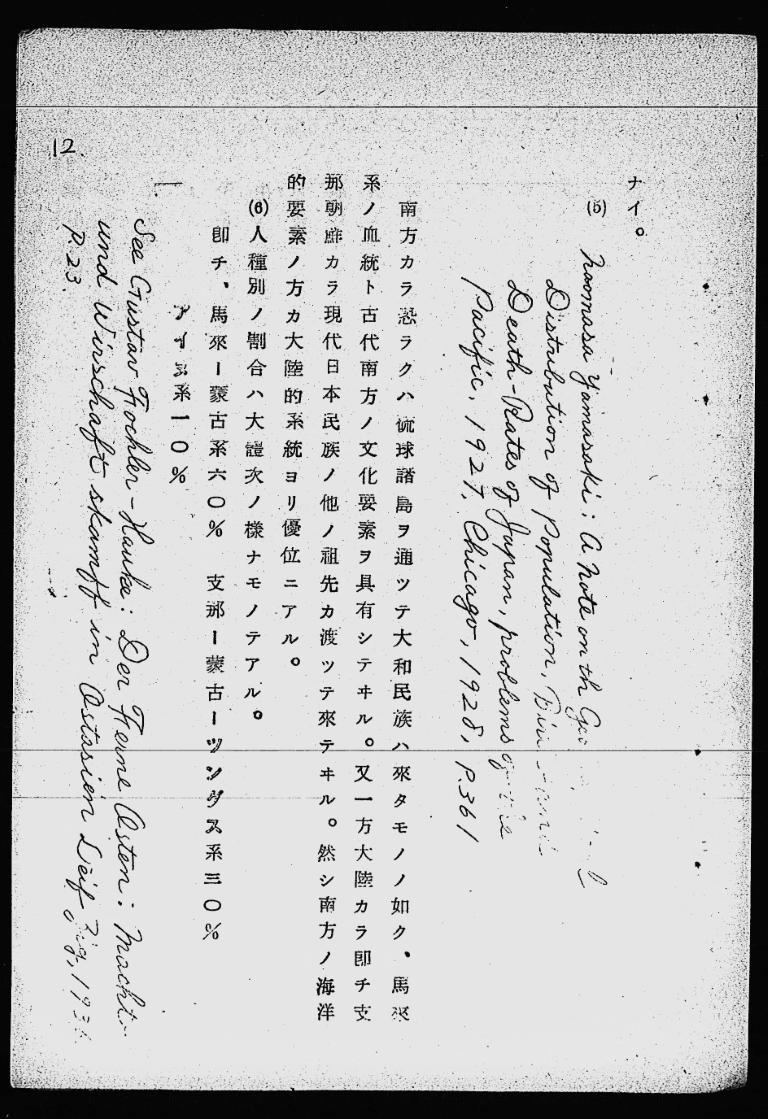 ナイ。
(5) Naomasa Yamasaki: A note on th
Distribution of Population,
Death-Rates of Japan, problems
Pacific, 1927, Chicago, 1928, P.361
南方カラ恐ラクハ琉球諸島ヲ通ツテ大和民族ハ來タモノノ如ク、馬來
系ノ血統ト古代南方ノ文化要素ヲ具有シテヰル。又一方大陸カラ卽チ支
那朝鮮カラ現代日本民族ノ他ノ祖先カ渡ツテ來テヰル。然シ南方ノ海洋
的要素ノ方カ大陸的系統ヨリ優位ニアル。
(6)人種別ノ割合ハ大體次ノ樣ナモノテアル。
卽チ、馬來ー蒙古系六〇% 支那ー蒙古ーツングス系三〇%
アイヌ系一〇%
See Gustav Fochler-Hauke: Der Ferne Osten: Macht-
und Wirschaft skampf in Ostasien Leipzig, 193
P.23.
12.